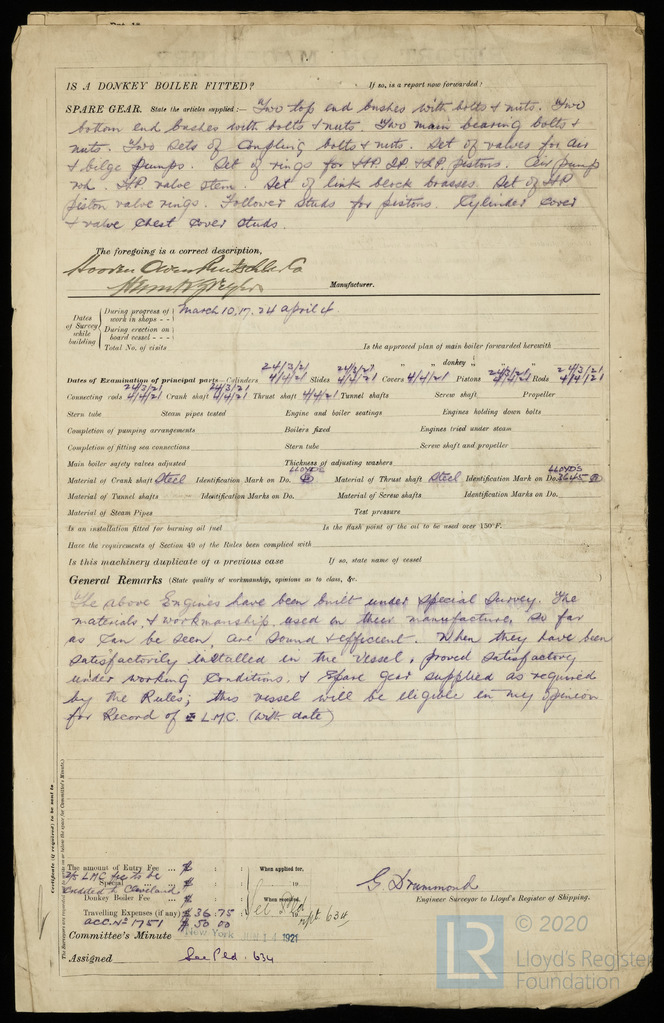 IS A DONKEY BOILER FITTED? If so, is a report now forwarded?
SPARE GEAR. State the articles supplied:— Two top end bushes with bolts & nuts. Two
bottom end bushes with bolts & nuts. Two main bearing bolts &
nuts. Two sets of Coupling bolts & nuts. Set of valves for air
& bilge pumps. Set of rings for H.P. I.P. & L.P. pistons. Air pump
rod. H.P. valve stem. Set of link block brasses. Set of H.P.
piston valve rings. Follower studs for pistons. Cylinder cover
& valve chest cover studs.
The foregoing is a correct description,
Hooven Owens Rentschler Co
Manufacturer.
Dates of Survey while building
During progress of work in shops - - March 10, 17, 24 April 4.
During erection on board vessel - - -
Total No. of visits
Is the approved plan of main boiler forwarded herewith
" " donkey " " "
Dates of Examination of principal parts—Cylinders 24/3/21 4/4/21 Slides 24/3/21 4/4/21 Covers 4/4/21 Pistons 24/3/21 4/4/21 Rods 24/3/21 4/4/21
Connecting rods 24/3/21 4/4/21 Crank shaft 24/3/21 4/4/21 Thrust shaft 4/4/21 Tunnel shafts Screw shaft Propeller
Stern tube Steam pipes tested Engine and boiler seatings Engines holding down bolts
Completion of pumping arrangements Boilers fixed Engines tried under steam
Completion of fitting sea connections Stern tube Screw shaft and propeller
Main boiler safety valves adjusted Thickness of adjusting washers
Material of Crank shaft Steel Identification Mark on Do. LLOYD'S Material of Thrust shaft Steel Identification Mark on Do. LLOYD'S 1645
Material of Tunnel shafts Identification Marks on Do. Material of Screw shafts Identification Marks on Do.
Material of Steam Pipes Test pressure
Is an installation fitted for burning oil fuel Is the flash point of the oil to be used over 150°F.
Have the requirements of Section 49 of the Rules been complied with
Is this machinery duplicate of a previous case If so, state name of vessel
General Remarks (State quality of workmanship, opinions as to class, &c.
The above Engines have been built under special survey. The
materials & workmanship used in their manufacture, so far
as can be seen, are sound & efficient. When they have been
satisfactorily installed in the vessel, proved satisfactory
under working conditions, & Spare gear supplied as required
by the Rules; this vessel will be eligible in my opinion
for Record of LMC. (with date)
Certificate (if required) to be sent to
The amount of Entry Fee ... $ : : When applied for,
2/5 LMC fee to be Special ... $ : : 19
credited to Cleveland
Donkey Boiler Fee ... $ : : When received,
Travelling Expenses (if any) $ 36.75 19
ACC. No 1751 $ 50.00
G. Drummond
Engineer Surveyor to Lloyd's Register of Shipping.
Committee's Minute New York 14 1921
Assigned See P'ld. 634
© 2020
LR
Lloyd's Register
Foundation